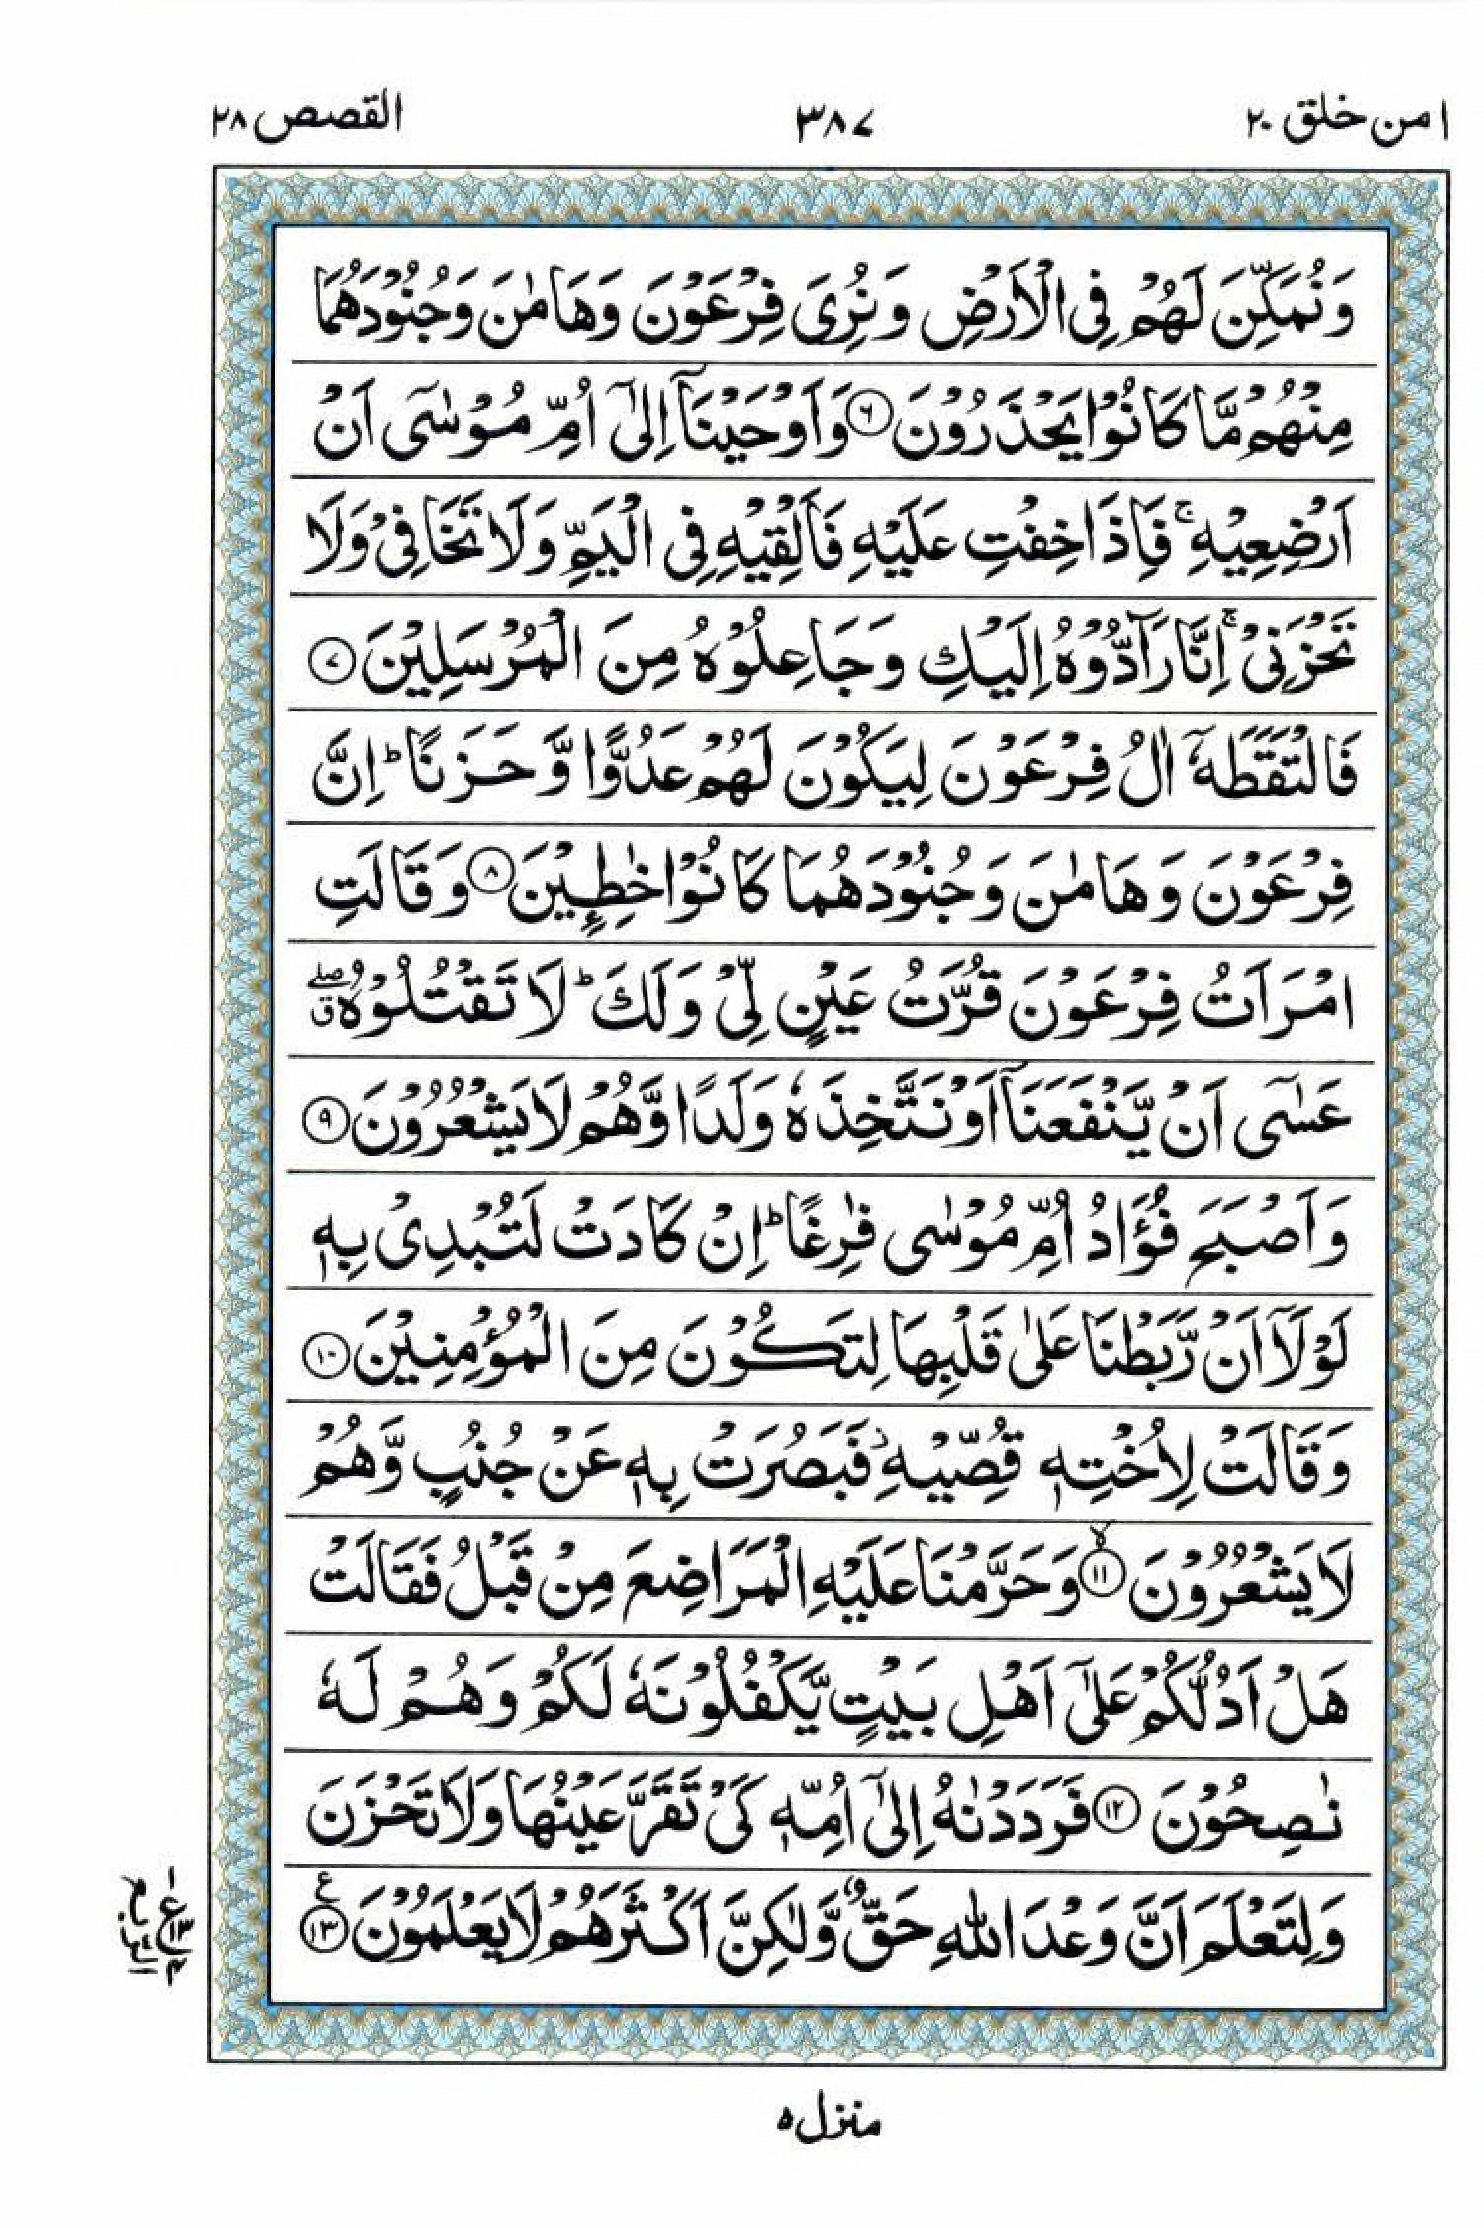 امن خلق ۲۰
۳۸۷
القصص ۲۸
وَنُمَكِّنَ لَهُمْ فِی الْاَرْضِ وَ نُرِیَ فِرْعَوْنَ وَهَامٰنَ وَجُنُوْدَهُمَا
مِنْهُمْ مَّا كَانُوْا یَحْذَرُوْنَ ۶ وَ اَوْحَیْنَاۤ اِلٰۤی اُمِّ مُوْسٰۤی اَنْ
اَرْضِعِیْهِ ۚ فَاِذَا خِفْتِ عَلَیْهِ فَاَلْقِیْهِ فِی الْیَمِّ وَلَا تَخَافِیْ وَلَا
تَحْزَنِیْ ۚ اِنَّا رَآدُّوْهُ اِلَیْكِ وَجَاعِلُوْهُ مِنَ الْمُرْسَلِیْنَ ۷
فَالْتَقَطَهٗۤ اٰلُ فِرْعَوْنَ لِیَكُوْنَ لَهُمْ عَدُوًّا وَّ حَزَنًا ؕ اِنَّ
فِرْعَوْنَ وَ هَامٰنَ وَ جُنُوْدَهُمَا كَانُوْا خٰطِـِٕیْنَ ۸ وَ قَالَتِ
امْرَاَتُ فِرْعَوْنَ قُرَّتُ عَیْنٍ لِّیْ وَ لَكَ ؕ لَا تَقْتُلُوْهُ ۖق
عَسٰۤی اَنْ یَّنْفَعَنَاۤ اَوْ نَتَّخِذَهٗ وَلَدًا وَّهُمْ لَا یَشْعُرُوْنَ ۹
وَ اَصْبَحَ فُؤَادُ اُمِّ مُوْسٰی فٰرِغًا ؕ اِنْ كَادَتْ لَتُبْدِیْ بِهٖ
لَوْلَاۤ اَنْ رَّبَطْنَا عَلٰی قَلْبِهَا لِتَكُوْنَ مِنَ الْمُؤْمِنِیْنَ ۱۰
وَ قَالَتْ لِاُخْتِهٖ قُصِّیْهِ ؗ فَبَصُرَتْ بِهٖ عَنْ جُنُبٍ وَّهُمْ
لَا یَشْعُرُوْنَ ۱۱ ۙ وَ حَرَّمْنَا عَلَیْهِ الْمَرَاضِعَ مِنْ قَبْلُ فَقَالَتْ
هَلْ اَدُلُّكُمْ عَلٰۤی اَهْلِ بَیْتٍ یَّكْفُلُوْنَهٗ لَكُمْ وَ هُمْ لَهٗ
نٰصِحُوْنَ ۱۲ فَرَدَدْنٰهُ اِلٰۤی اُمِّهٖ كَیْ تَقَرَّ عَیْنُهَا وَلَا تَحْزَنَ
وَ لِتَعْلَمَ اَنَّ وَعْدَ اللّٰهِ حَقٌّ وَّلٰكِنَّ اَكْثَرَهُمْ لَا یَعْلَمُوْنَ ۱۳ ع
منزل ۵